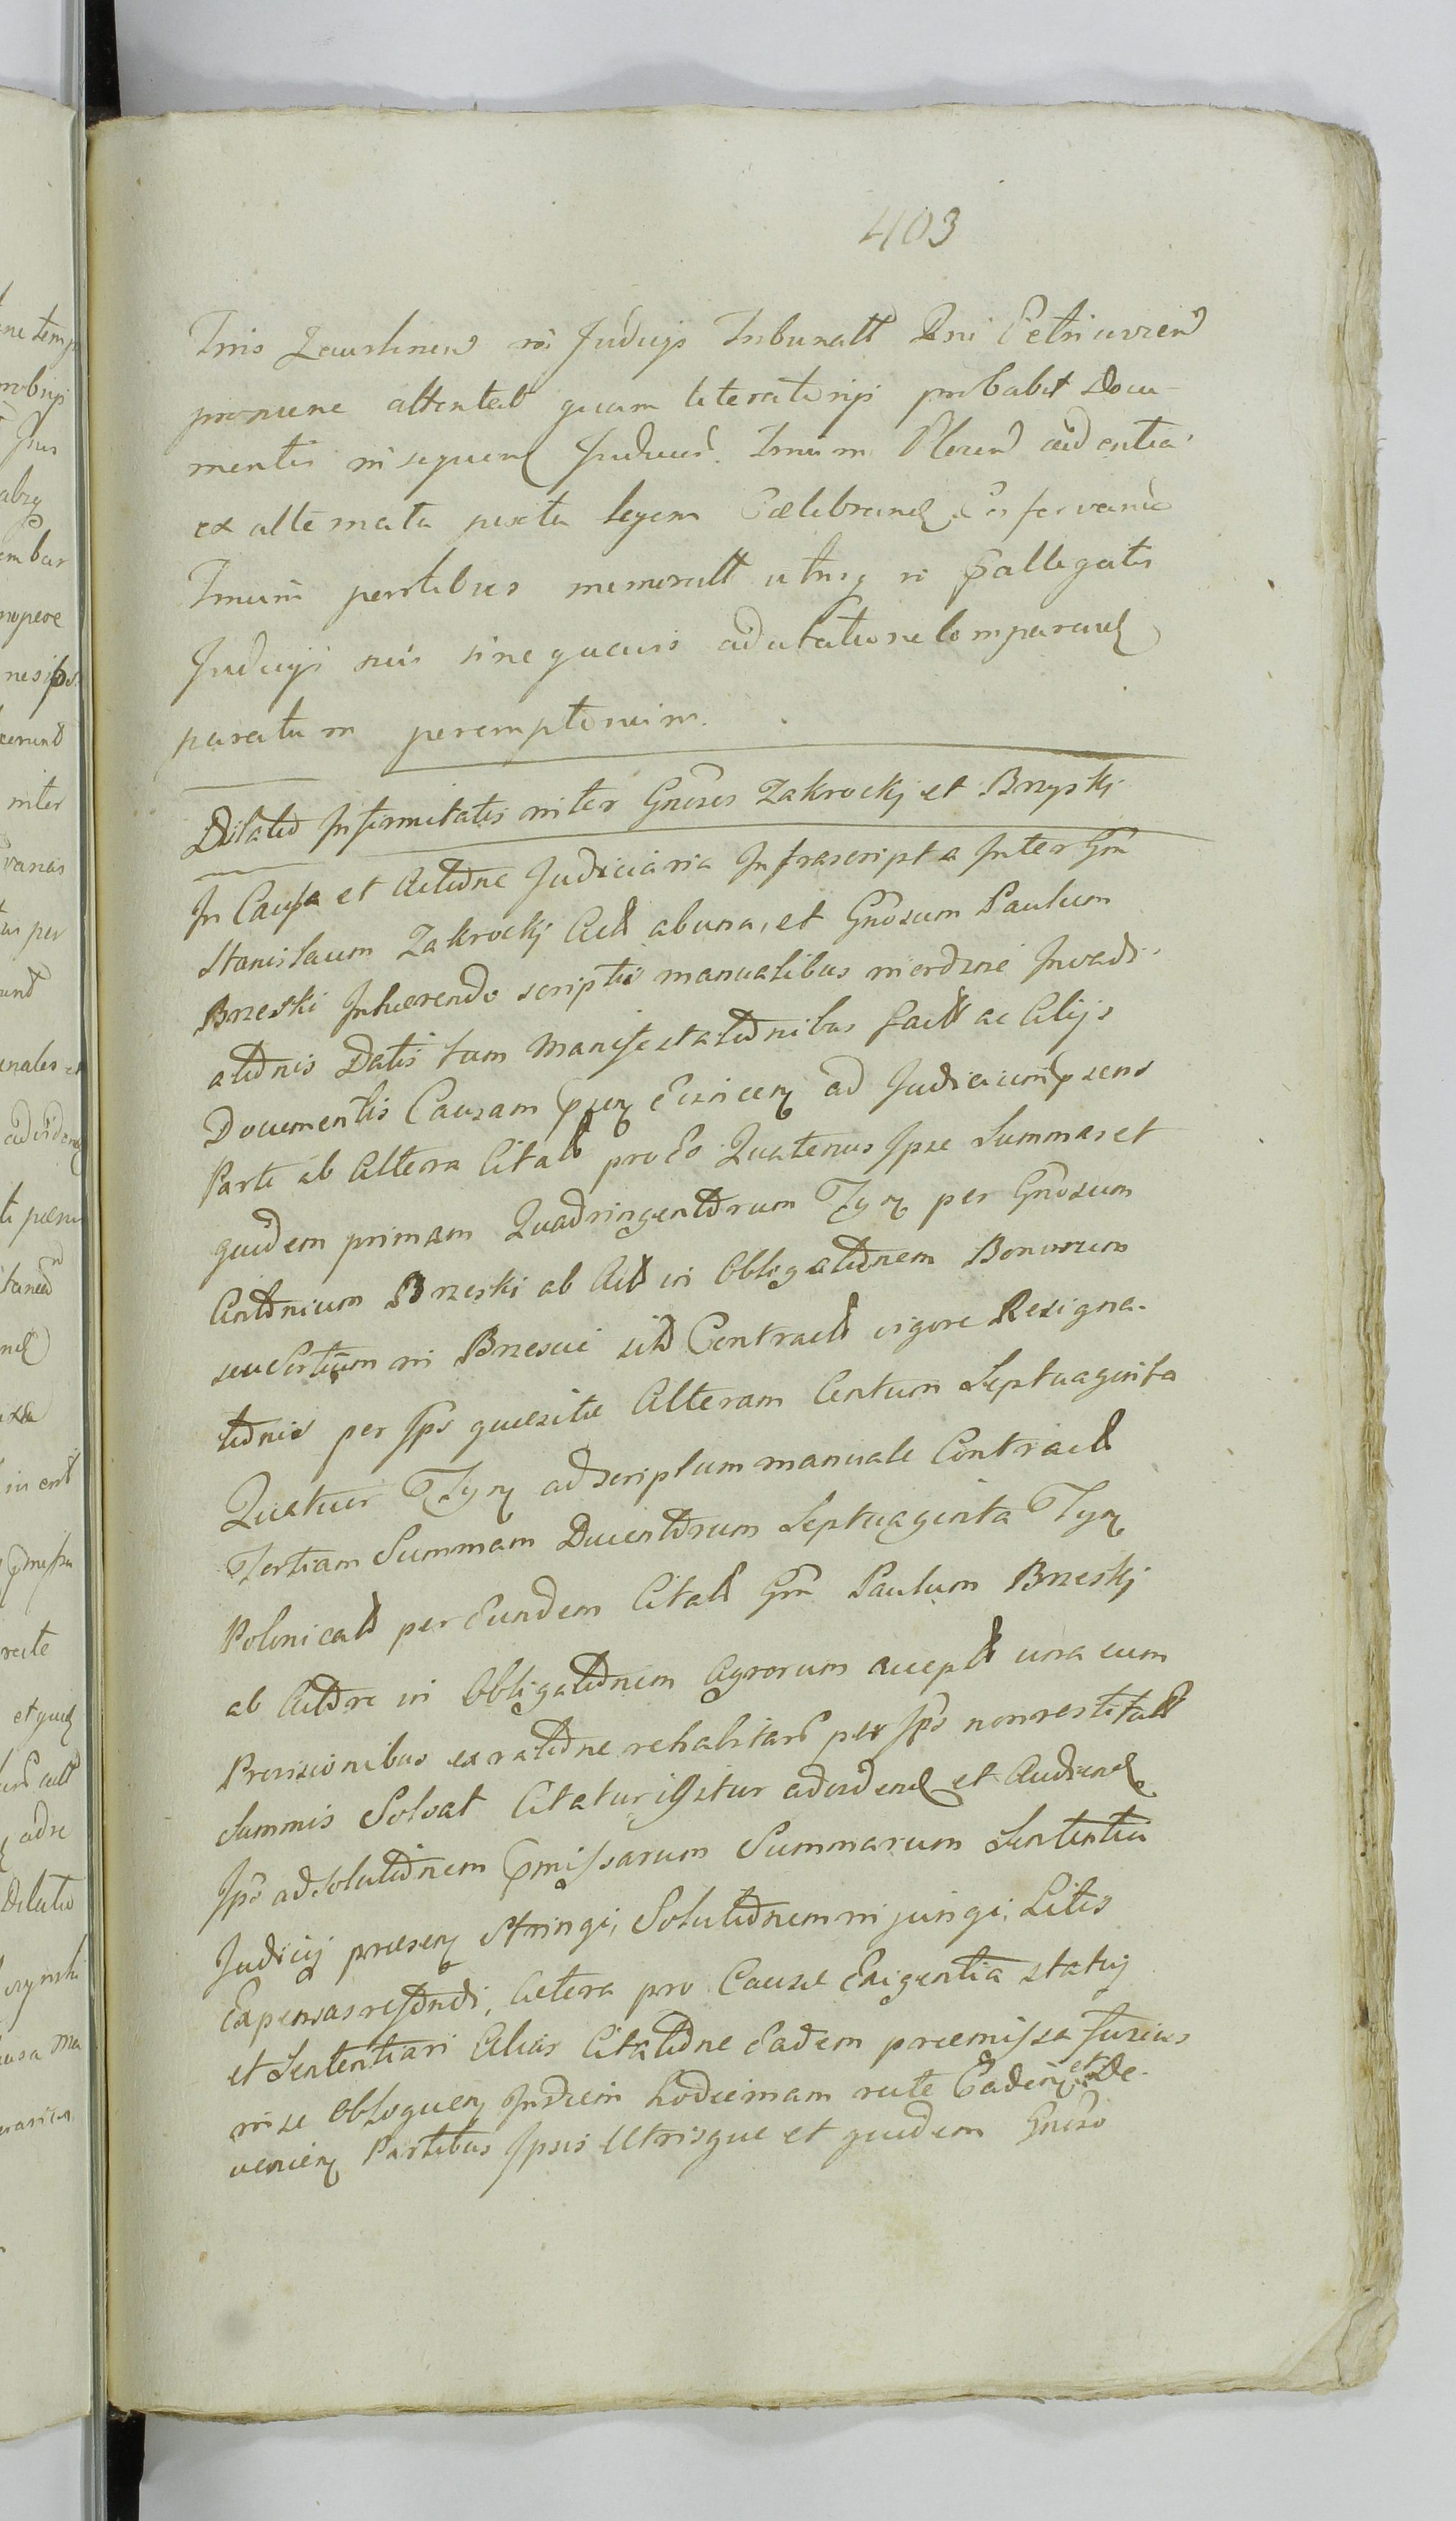 403
Trris in Judicys Tribunall Rni Petricovien
pronunc attentat quam literatorys probabit Docu-
mentis in sequen Judicior Trnum Plocen
ex alternata juxta legem Caelebrand Conservando
Trnum partibus memoratt utrisq in pallegatis
Judicys suis sine quavis adcitatione comparend
paratum peremptorium.
Dilatio Infirmitatis inter Gnosos Zakrockj et Brzyskj
In Causa et Actione Judiciaria Infrascripta Inter Gm
Stanislaum Zakrockj Act ab una, et Gnosum Paulum
Brzeski Inhaerendo scriptis manualibus inordine Invadi-
ationis Datis tum Manifestationibus fact ac Alijs
Documentis Causam psen Evincen ad Judicium psens
Parte ab Altera Citat pro Eo Quatenus Ipse Summas et
quidem primam Quadringentorum Tyn per Gnosum
Antonium Brzeski ab Act in Obligationem Bonorum
seu Sortium in Brzescie sit Contract vigore Resigna-
tionis per Ips quaesitae Alteram Centum Septuaginta
Quatuor Tyn ad Scriptum manuale Contract
Tertiam Summam Ducentorum Septuaginta Tyn
Polonicat per Eundem Citat Gm Paulum Brzeskj
ab Actore in Obligationem Agrorum accept una cum
Provisionibus ex ratione rehabitar per Ips non restitutt
Summis Solvat Citatur igitur ad vidend et Audiend
Ips ad solutionem pmissarum Summarum Sententia
Judicij praesen Stringi, Solutionem injungi, Litis
Expensas refundi, Cetera pro Causae Exigentia statuj
et Sententiari Alias Citatione Eadem praemissa fusius
in se obloquen In diem hodiernam recte Caden et De-
venien Partibus Ipsis Utrisque et quidem Gnoso